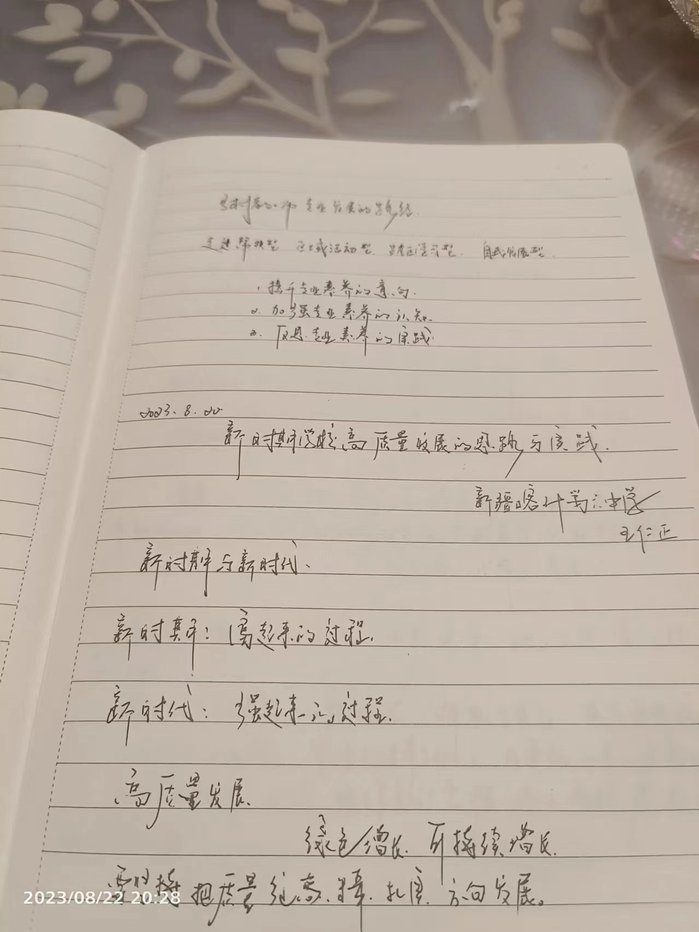 专业发展的路径
自我发展型
1. 提升专业素养的意向.
2. 加强专业素养的认知.
3. 反思专业素养的实践.
2023.8.22.
新时期学校高质量发展的思路与实践.
新疆喀什第二中学
王仁正
新时期与新时代.
新时期: 富起来的过程.
新时代: 强起来的过程.
高质量发展.
绿色增长. 可持续增长.
坚持把质量往高、精、扎实方向发展。
2023/08/22 20:28